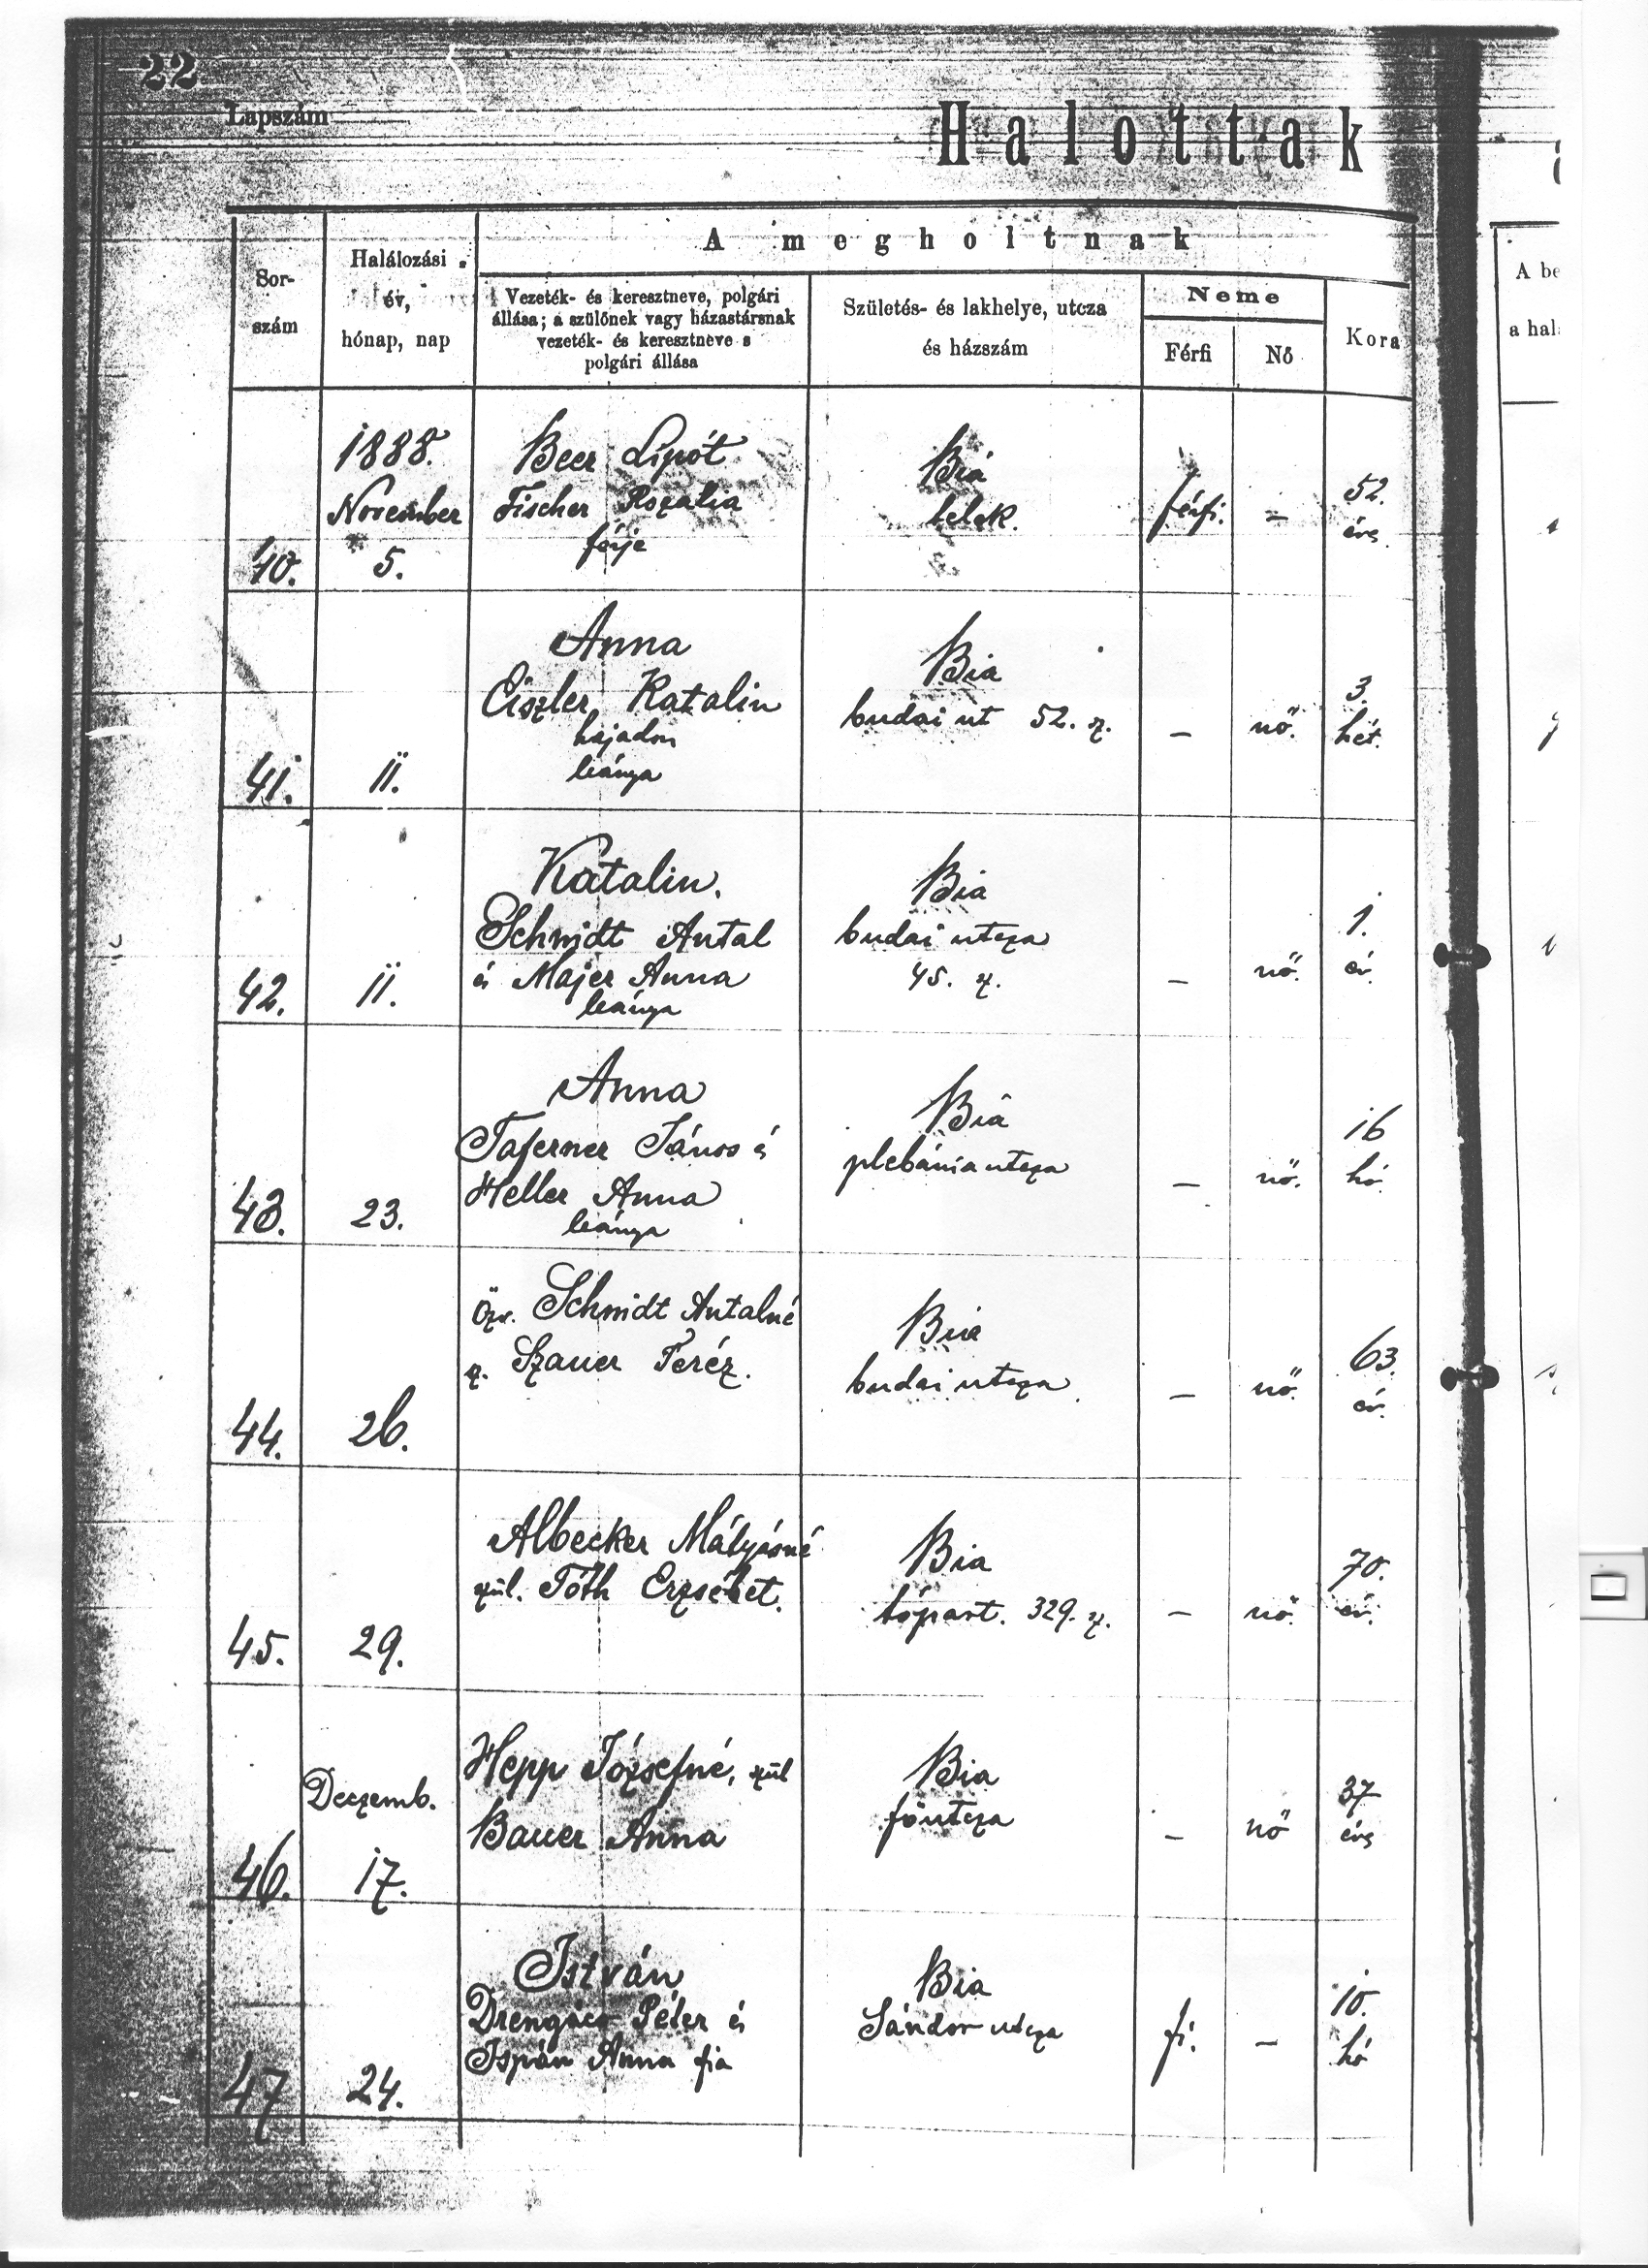 22
Lapszám
Halottak
A megholtnak
Sor-
szám
Halálozási
év,
hónap, nap
Vezeték- és keresztneve, polgári
állása; a szülőnek vagy házastársnak
vezeték- és keresztneve s
polgári állása
Születés- és lakhelye, utcza
és házszám
Neme
Férfi
Nő
Kora
A be
a hal
40.
1888.
November
5.
Beer Lipót
Fischer Rozalia
férje
Bia
telek.
férfi.
–
52.
éves
41.
11.
Anna
Eiszler Katalin
hajadon
leánya
Bia
budai ut 52. sz.
–
nő.
3.
hét.
42.
11.
Katalin.
Schmidt Antal
és Majer Anna
leánya
Bia
budai utcza
45. sz.
–
nő.
1.
év.
43.
23.
Anna
Taferner János é
Heller Anna
leánya
Bia
plebánia utcza
–
nő.
16
hó.
44.
26.
Özv. Schmidt Antalné
sz. Szauer Teréz.
Bia
budai utcza
–
nő.
63.
év.
45.
29.
Albecker Mátyásné
szül. Tóth Erzsébet.
Bia
tópart. 329. sz.
–
nő.
70.
év.
46.
Deczemb.
17.
Hepp Józsefné, szül
Bauer Anna
Bia
főutcza
–
nő
37
éves
47
24.
István
Péter és
Ispán Anna fia
Bia
Sándor utcza
fi.
–
10.
hó